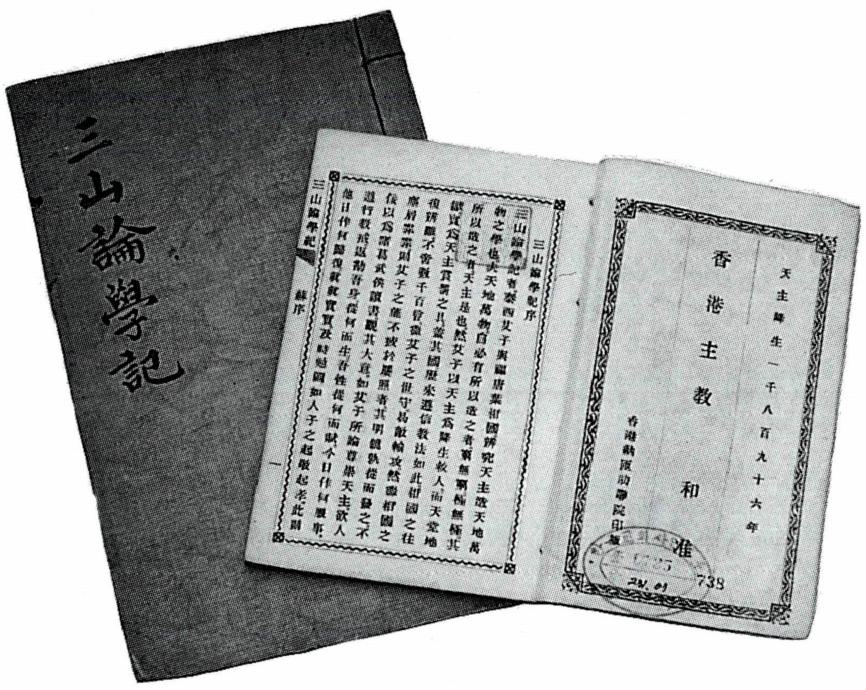 三山論學記
三山論學記序
三山論學記者泰西艾子與福唐葉相國辨究天主造天地萬
物之學也夫天地萬物自必有所以造之者窮無窮極無極其
所以造之者天主是也然艾子以天主爲降生救人而天堂地
獄實爲天主賞罰之具蓋其國歷來遵信教法如此相國之往
復辨難不啻數千百言當艾子之世守易敵輸攻然微相國之
屑霏霏則艾子之蘊不照者其明鏡孰從而發之不
佞以爲諸葛武侯讀書觀其大意如艾子所論尊崇天主欲人
遵行教戒返勘吾身從何而生吾性從何而賦今日作何服事
他日作何歸復眞眞實實及時勉圖如人子之起敬起孝此則
三山論學記 蘇序 一
天主降生一千八百九十六年
香港主教 和准
香港納匝肋靜院印
738